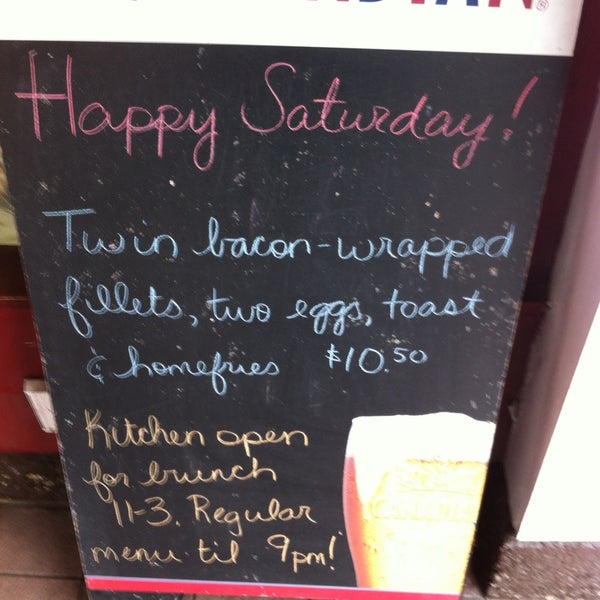 Happy Saturday!
Twin bacon-wrapped
fillets, two eggs, toast
& homefries $10.50
Kitchen open
for brunch
11-3. Regular
menu til 9pm!